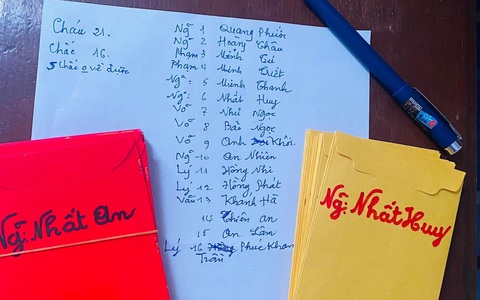 Cháu 21.
Chắc 16.
5 Chắc 0 về được
Ng̃ 1 Quang Phước
Ng̃ 2 Hoàng Châu
Phạm 3 Minh Tú
Phạm 4 Minh Triết
Ng̃ 5 Minh Thanh
Ng̃ 6 Nhất Huy
Võ 7 Như Ngọc
Võ 8 Bảo Ngọc
Võ 9 Anh Khôi
Ng̃ 10 An Nhiên
Lý 11 Hồng Nhi
Lý 12 Hồng Phát
Văn 13 Khánh Hà
14 Thiên an
15 An Lâm
Lý 16 Phúc Khan
Trần
Ng̃: Nhất An
Ng̃: Nhất Huy